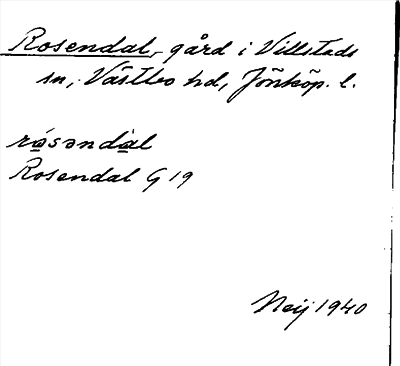 Rosendal, gård i Villstads
sn, Västbo hd, Jönköp. l.
rósəndàl
Rosendal G 19
Neij 1940